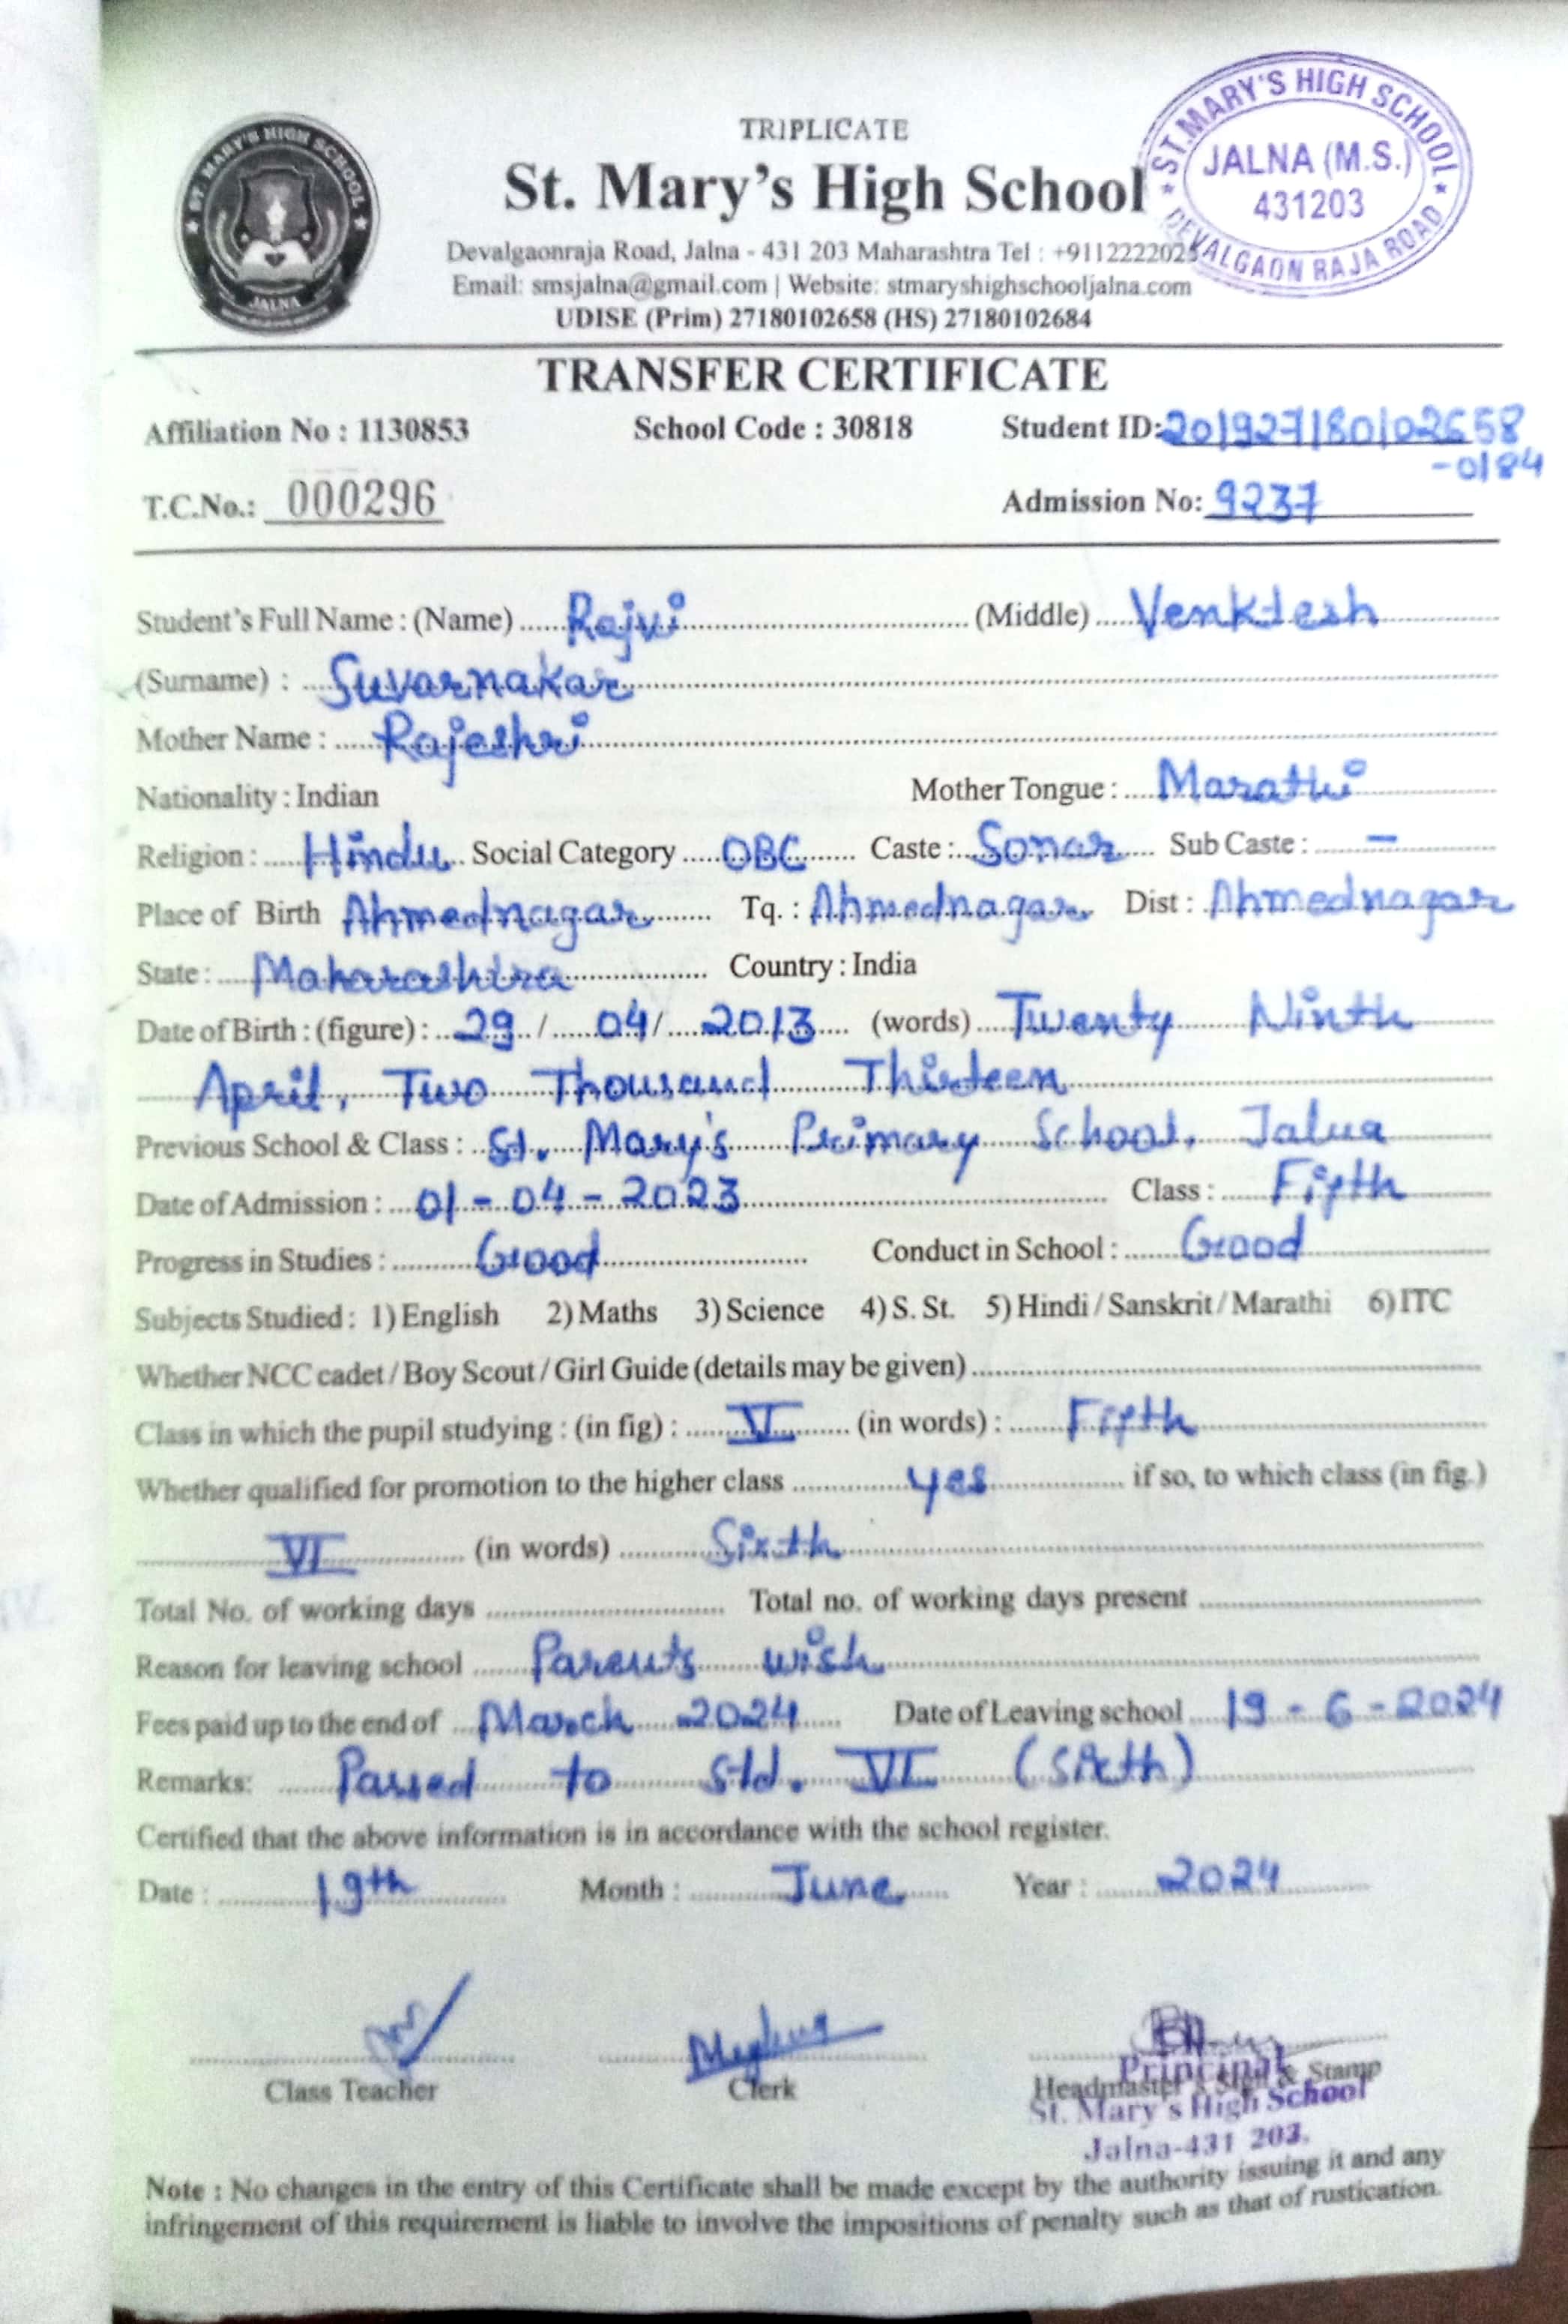 TRIPLICATE
St. Mary's High School
Devalgaonraja Road, Jalna - 431 203 Maharashtra Tel : +9112222025
Email: smsjalna@gmail.com | Website: stmaryshighschooljalna.com
UDISE (Prim) 27180102658 (HS) 27180102684
ST. MARY'S HIGH SCHOOL
JALNA
ST. MARY'S HIGH SCHOOL
JALNA (M.S.)
431203
DEVALGAON RAJA ROAD
TRANSFER CERTIFICATE
Affiliation No : 1130853 School Code : 30818 Student ID: 201927180102658
-0184
T.C.No.: 000296 Admission No: 9237
Student's Full Name : (Name) Rajvi (Middle) Venktesh
(Surname) : Suvarnakar
Mother Name : Rajeshri
Nationality : Indian Mother Tongue : Marathi
Religion : Hindu Social Category OBC Caste : Sonar Sub Caste : -
Place of Birth Ahmednagar Tq. : Ahmednagar Dist : Ahmednagar
State : Maharashtra Country : India
Date of Birth : (figure) : 29 / 04 / 2013 (words) Twenty Ninth
April, Two Thousand Thirteen
Previous School & Class : St. Mary's Primary School, Jalna
Date of Admission : 01 - 04 - 2023 Class : Fifth
Progress in Studies : Good Conduct in School : Good
Subjects Studied : 1) English 2) Maths 3) Science 4) S. St. 5) Hindi / Sanskrit / Marathi 6) ITC
Whether NCC cadet / Boy Scout / Girl Guide (details may be given)
Class in which the pupil studying : (in fig) : V (in words) : Fifth
Whether qualified for promotion to the higher class yes if so, to which class (in fig.)
VI (in words) Sixth
Total No. of working days Total no. of working days present
Reason for leaving school Parents wish
Fees paid up to the end of March 2024 Date of Leaving school 19 - 6 - 2024
Remarks: Passed to std. VI (Sixth)
Certified that the above information is in accordance with the school register.
Date : 19th Month : June Year : 2024
Class Teacher Clerk Headmaster's Sign & Stamp
Principal
St. Mary's High School
Jalna-431 203.
Note : No changes in the entry of this Certificate shall be made except by the authority issuing it and any
infringement of this requirement is liable to involve the impositions of penalty such as that of rustication.